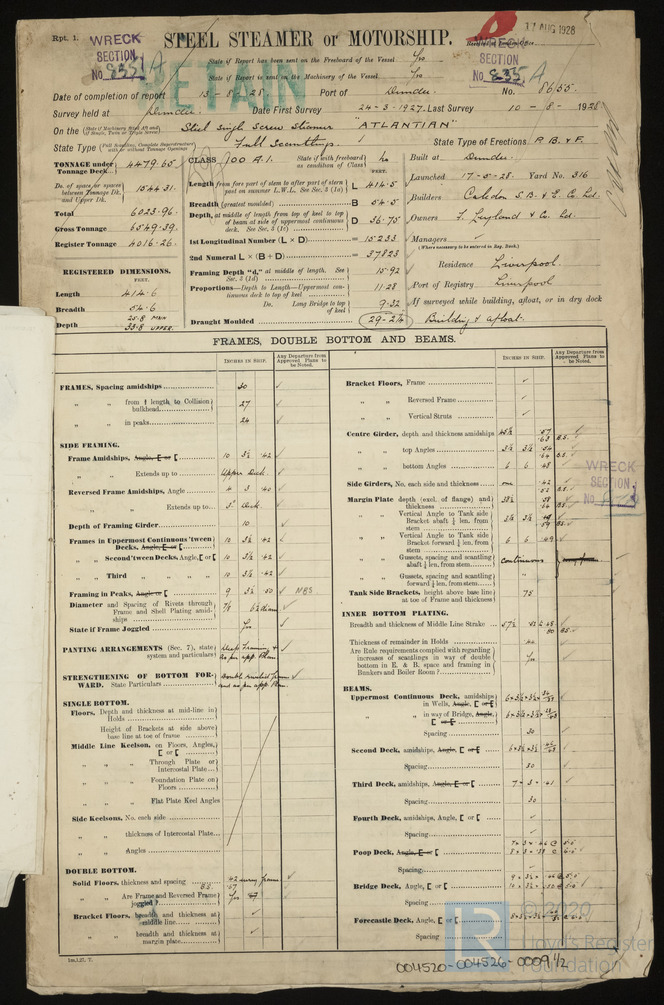 Rpt. 1.
WRECK
SECTION
No 835/A
STEEL STEAMER or MOTORSHIP.
17 AUG 1928
WRECK
SECTION
No 835/A
RETAIN
State if Report has been sent on the Freeboard of the Vessel Yes
State if Report is sent on the Machinery of the Vessel Yes
Date of completion of report 13-8-28. Port of Dundee No. 8655
Survey held at Dundee Date First Survey 24-3-1927. Last Survey 10-8-1928
On the Steel Single Screw Steamer "ATLANTIAN"
State Type Full Scantlings State Type of Erections P. B. & F.
TONNAGE under Tonnage Deck 4479.65
Do. of space or spaces between Tonnage Dk. and Upper Dk. 1544.31
Total 6023.96
Gross Tonnage 6549.39
Register Tonnage 4016.26
REGISTERED DIMENSIONS.
FEET.
Length 414.6
Breadth 54.6
Depth 33.8 UPPER
CLASS 100 A.1. State if with freeboard as condition of Class No
Length from fore part of stem to after part of stern post on summer L.W.L. See Sec. 3 (1a) L 414.5
Breadth (greatest moulded) B 54.5
Depth, at middle of length from top of keel to top of beam at side of uppermost continuous deck. See Sec. 3 (1c) D 36.75
1st Longitudinal Number (L × D) = 15233
2nd Numeral L × (B + D) = 37823
Framing Depth "d," at middle of length. See Sec. 3 (1d) 15.92
Proportions—Depth to Length—Uppermost continuous deck to top of keel 11.28
Do. Long Bridge to top of keel 9.32
Draught Moulded 29-2¼
Built at Dundee
Launched 17-5-28. Yard No. 316
Builders Caledon S. B. & E. Co Ltd.
Owners F. Leyland & Co. Ltd.
Managers
(Where necessary to be entered in Reg. Book.)
Residence Liverpool.
Port of Registry Liverpool
If surveyed while building, afloat, or in dry dock
Building & afloat.
FRAMES, DOUBLE BOTTOM AND BEAMS.
INCHES IN SHIP.
Any Departure from Approved Plans to be Noted.
FRAMES, Spacing amidships 30
" " from ⅕ length to Collision bulkhead 27
" " in peaks 24
SIDE FRAMING.
Frame Amidships, Angle, E or [ 10 3½ .42
" " Extends up to Upper Deck
Reversed Frame Amidships, Angle 4 3 .40
" " " Extends up to 3rd Deck
Depth of Framing Girder 10
Frames in Uppermost Continuous 'tween Decks, Angle, E or [ 10 3½ .42
" " Second 'tween Decks, Angle, [ or [ 10 3½ .42
" " Third " " " " 10 3½ .42
Framing in Peaks, Angle or [ 9 3½ .50 MBS
Diameter and Spacing of Rivets through Frame and Shell Plating amidships ⅞ 6½ diam
State if Frame Joggled Yes
PANTING ARRANGEMENTS (Sec. 7), state system and particulars as per app. Plan
STRENGTHENING OF BOTTOM FORWARD. State Particulars and as per app. Plan.
SINGLE BOTTOM.
Floors, Depth and thickness at mid-line in Holds
Height of Brackets at side above base line at toe of frame
Middle Line Keelson, on Floors, Angles, [ or [
" " Through Plate or Intercostal Plate
" " Foundation Plate on Floors
" " Flat Plate Keel Angles
Side Keelsons, No. each side
" " thickness of Intercostal Plate
" " Angles
DOUBLE BOTTOM.
Solid Floors, thickness and spacing .42 every frame
" " Are Frame and Reversed Frame joggled? Yes
Bracket Floors, breadth and thickness at middle line
" " breadth and thickness at margin plate
Bracket Floors, Frame
" " Reversed Frame
" " Vertical Struts
Centre Girder, depth and thickness amidships
" " top Angles
" " bottom Angles 6 6 .48
Side Girders, No. each side and thickness one .42
Margin Plate depth (excl. of flange) and thickness 38½
" " Vertical Angle to Tank side Bracket abaft ¼ len. from stem
" " Vertical Angle to Tank side Bracket forward ¼ len. from stem 6 6 .49
" " Gussets, spacing and scantling abaft ¼ len. from stem continuous
" " Gussets, spacing and scantling forward ¼ len. from stem
Tank Side Brackets, height above base line at toe of Frame and thickness 75
INNER BOTTOM PLATING.
Breadth and thickness of Middle Line Strake 57½
Thickness of remainder in Holds
Are Rule requirements complied with regarding increases of scantlings in way of double bottom in E. & B. space and framing in Bunkers and Boiler Room? Yes
BEAMS.
Uppermost Continuous Deck, amidships in Wells, Angle, [ or [
" " in way of Bridge, Angle, [ or [
Spacing 30
Second Deck, amidships, Angle, [ or [
Spacing 30
Third Deck, amidships, Angle, E or [ 7 × 3 × .41
Spacing 30
Fourth Deck, amidships, Angle, [ or [
Spacing
Poop Deck, Angle, E or [
Spacing
Bridge Deck, Angle, [ or [
Spacing
Forecastle Deck, Angle, [ or [
Spacing
WRECK
SECTION
No
1m.1.27. T.
© 2020
LR
Lloyd's Register
Foundation
004520-004526-0009 1/2